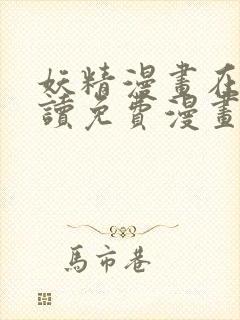 妖精漫畫在
讀免費漫畫
馬市巷